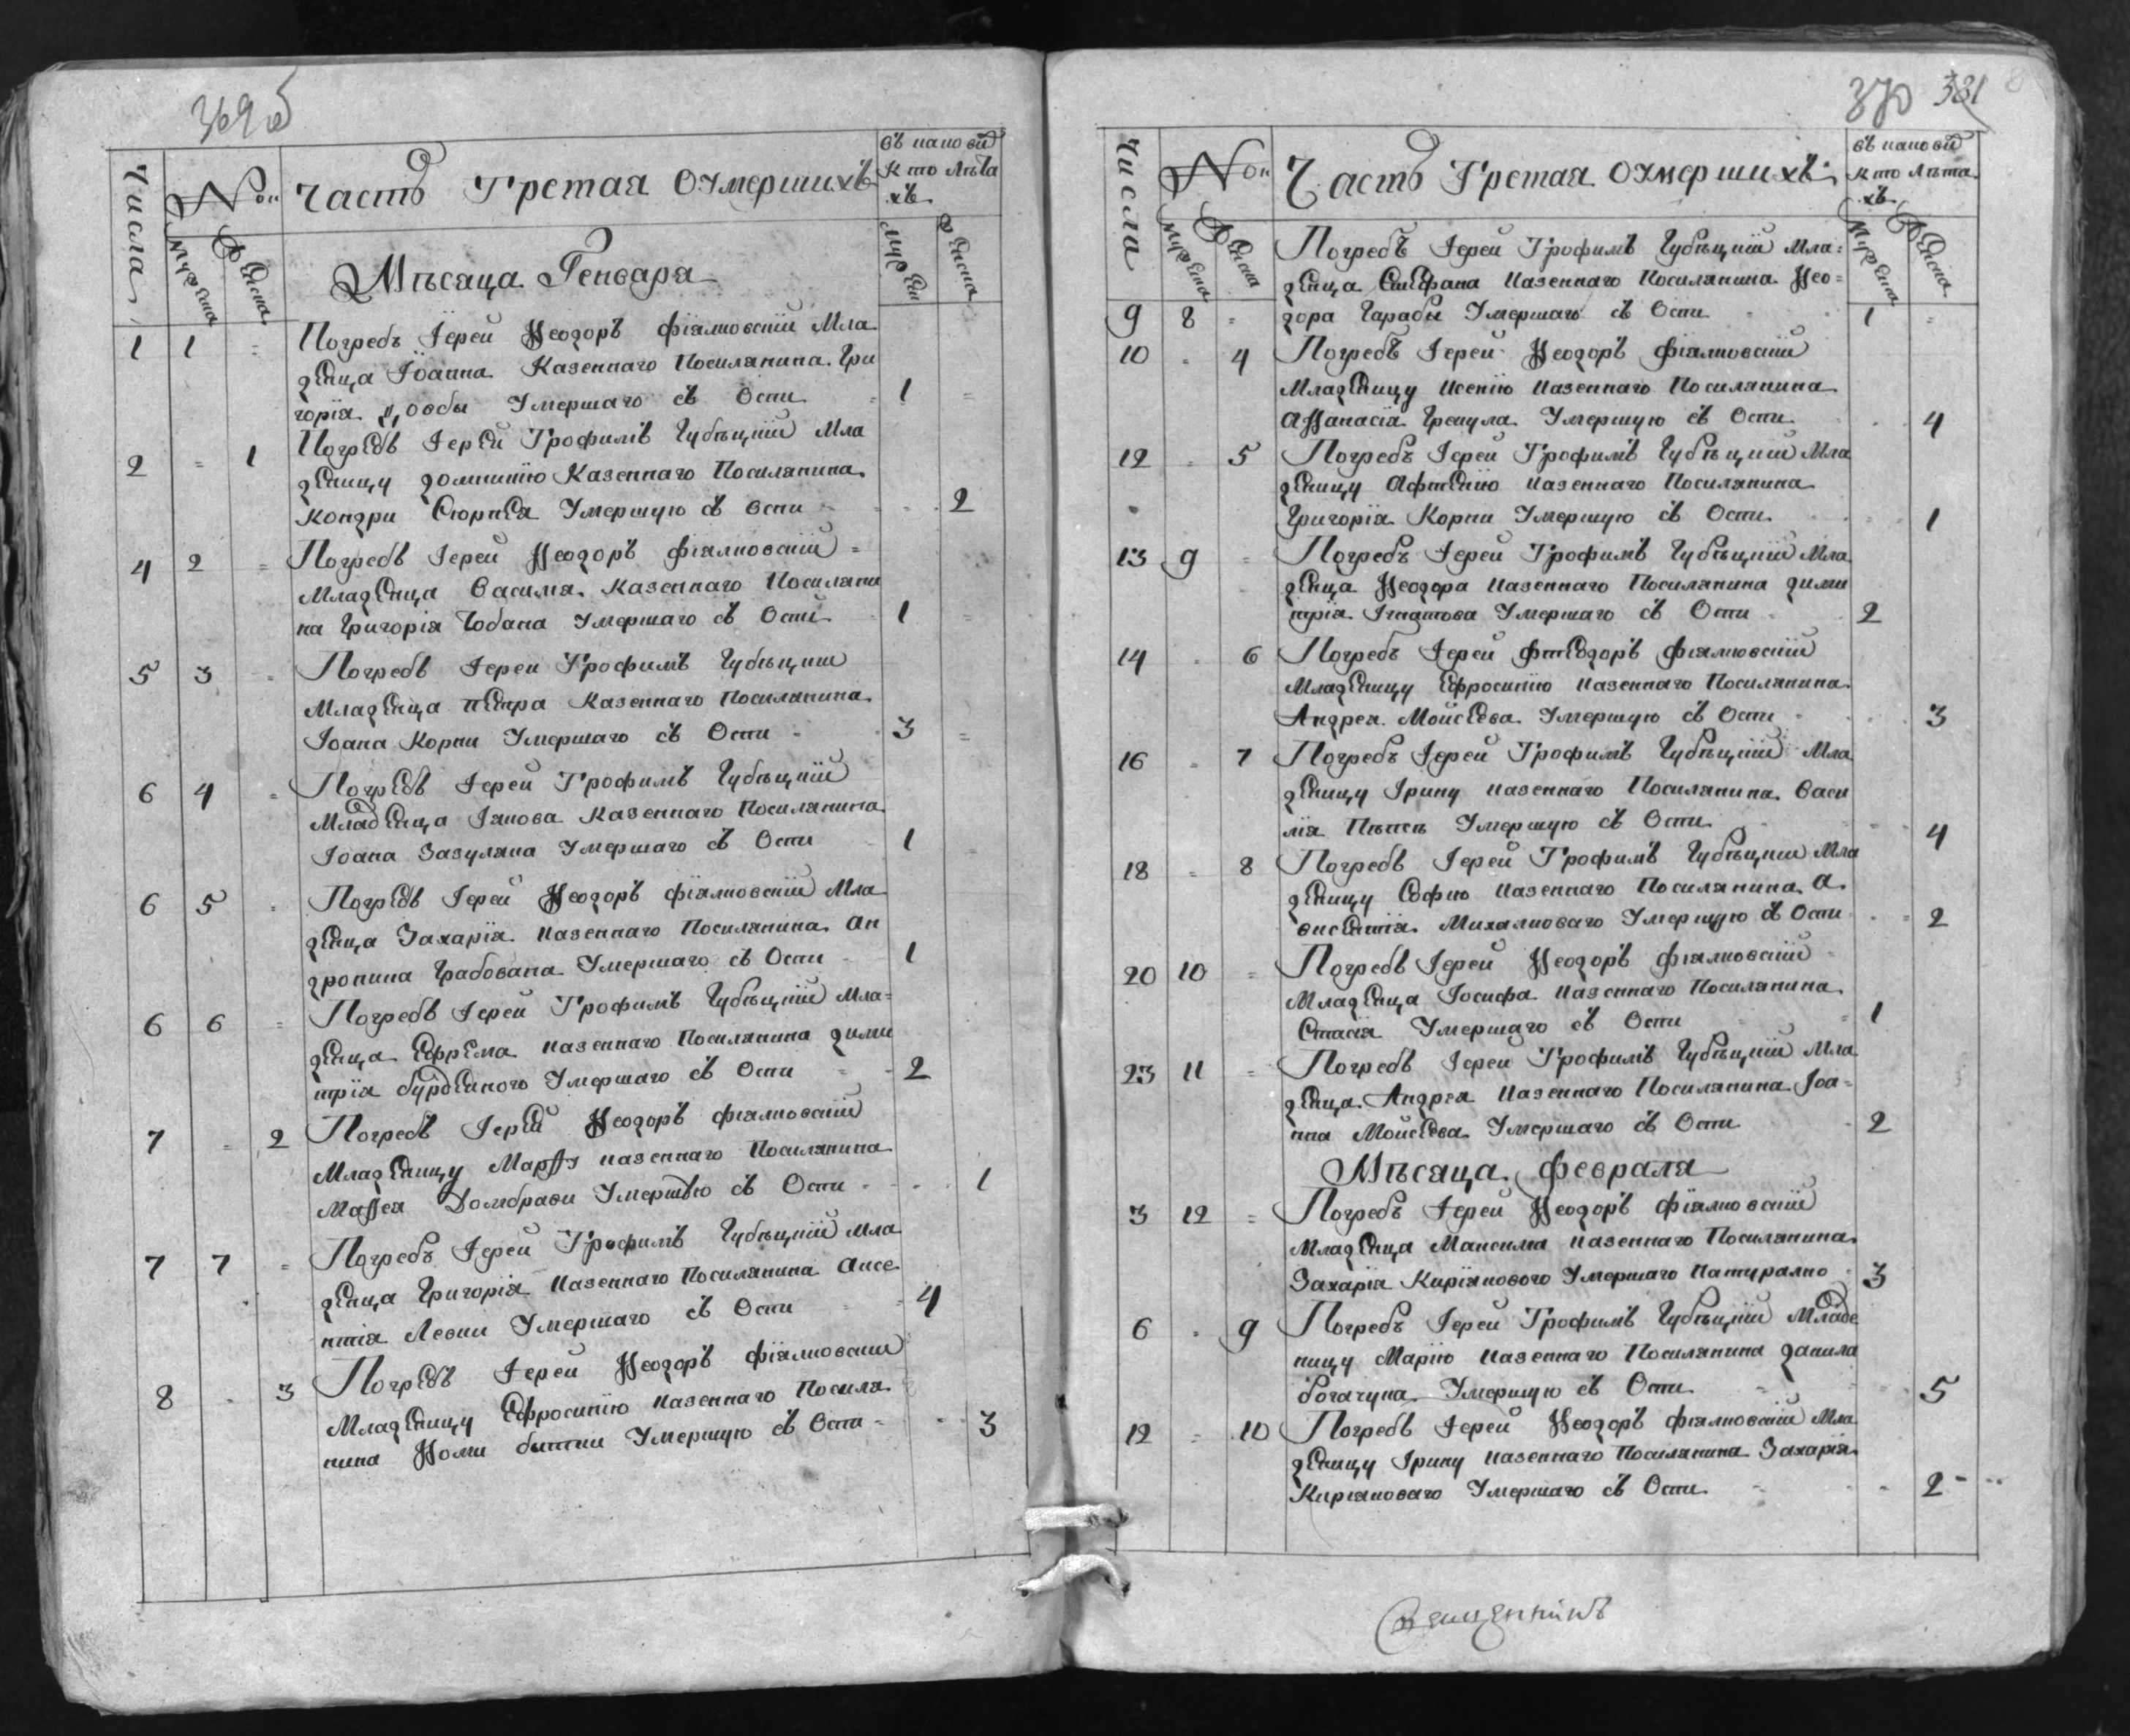 369 об
Числа
№
Часть Третая Оумершихъ
въ каковой
кто лѣта
хъ
Мужеска
Женска
Муж ск
Женска
Мѣсяца Генваря
1 1 = Погребъ Іерей Ѳеодоръ Фіялковскій Мла
денца Іоанна Казеннаго Посилянина Гри
горія Умершаго съ Оспи 1 =
2 = 1 Погребъ Іерей Трофимъ Губѣцкій Мла
деницу Домникію Казеннаго Посилянина
Кондри Умершую съ Оспи 2
4 2 = Погребъ Іерей Ѳеодоръ Фіялковскій =
Младенца Василя Казеннаго Посиляни
на Григорія Чобана Умершаго съ Оспи 1
5 3 Погребъ Іерей Трофимъ Губѣцкій
Младенца Петра Казеннаго Посилянина
Іоана Корпи Умершаго съ Оспи 3 =
6 4 = Погребъ Іерей Трофимъ Губѣцкій
Младенца Іякова Казеннаго Посилянина
Іоана Зазуляна Умершаго съ Оспи 1
6 5 Погребъ Іерей Ѳеодоръ Фіялковскій Мла
денца Захарія Казеннаго Посилянина Ан
дроника Грабована Умершаго съ Оспи 1
6 6 = Погребъ Іерей Трофимъ Губѣцкій Мла=
денца Ефрема Казеннаго Посилянина Дими
трія Бурденого Умершаго съ Оспи 2
7 = 2 Погребъ Іерей Ѳеодоръ Фіялковскій
Младеницу Марѳу Казеннаго Посилянина
Маѳея Домбрави Умершую съ Оспи 1
7 7 = Погребъ Іерей Трофимъ Губѣцкій Мла
денца Григорія Казеннаго Посилянина Авсе
нтія Левки Умершаго съ Оспи 4
8 3 Погребъ Іерей Ѳеодоръ Фіялковскій
Младеницу Ефросинію Казеннаго Посиля
нина Ѳоми Битки Умершую съ Оспи = 3
370 381
Числа
№
Часть Третая Оумершихъ
въ каковой
кто лѣта
хъ
Мужеска
Женска
Мужеска
Женска
Погребъ Іерей Трофимъ Губѣцкій Мла=
денца Стефана Казеннаго Посилянина Ѳео=
9 8 = дора Чарабы Умершаго съ Оспи 1 =
10 4 Погребъ Іерей Ѳеодоръ Фіялковскій
Младеницу Ксенію Казеннаго Посилянина
Аѳанасія Грекула Умершую съ Оспи 4
12 5 Погребъ Іерей Трофимъ Губѣцкій Мла
деницу Афтенію Казеннаго Посилянина
Григорія Корпи Умершую съ Оспи 1
13 9 = Погребъ Іерей Трофимъ Губѣцкій Мла
денца Ѳеодора Казеннаго Посилянина Дими
трія Игнатова Умершаго съ Оспи 2
14 6 Погребъ Іерей Фтеодоръ Фіялковскій
Младеницу Ефросинію Казеннаго Посилянина
Андрея Мойсеева Умершую съ Оспи 3
16 7 Погребъ Іерей Трофимъ Губѣцкій Мла
деницу Ірину Казеннаго Посилянина Васи
лія Умершую съ Оспи 4
18 = 8 Погребъ Іерей Трофимъ Губѣцкій Мла
деницу Софію Казеннаго Посилянина А
вксентія Михалковаго Умершую съ Оспи 2
20 10 = Погребъ Іерей Ѳеодоръ Фіялковскій
Младенца Іосифа Казеннаго Посилянина
Стасія Умершаго съ Оспи 1
23 11 = Погребъ Іерей Трофимъ Губѣцкій Мла
денца Андрея Казеннаго Посилянина Іоа=
нна Мойсеева Умершаго съ Оспи 2
Мѣсяца Февраля
3 12 = Погребъ Іерей Ѳеодоръ Фіялковскій
Младенца Максима Казеннаго Посилянина
Захарія Киріякового Умершаго Натурално 3
6 9 Погребъ Іерей Трофимъ Губѣцкій Младе
ницу Марію Казеннаго Посилянина Данила
Богачука Умершую съ Оспи 5
12 = 10 Погребъ Іерей Ѳеодоръ Фіялковскій Мла
деницу Ірину Казеннаго Посилянина Захарія
Киріяковаго Умершаго съ Оспи 2
Священникъ